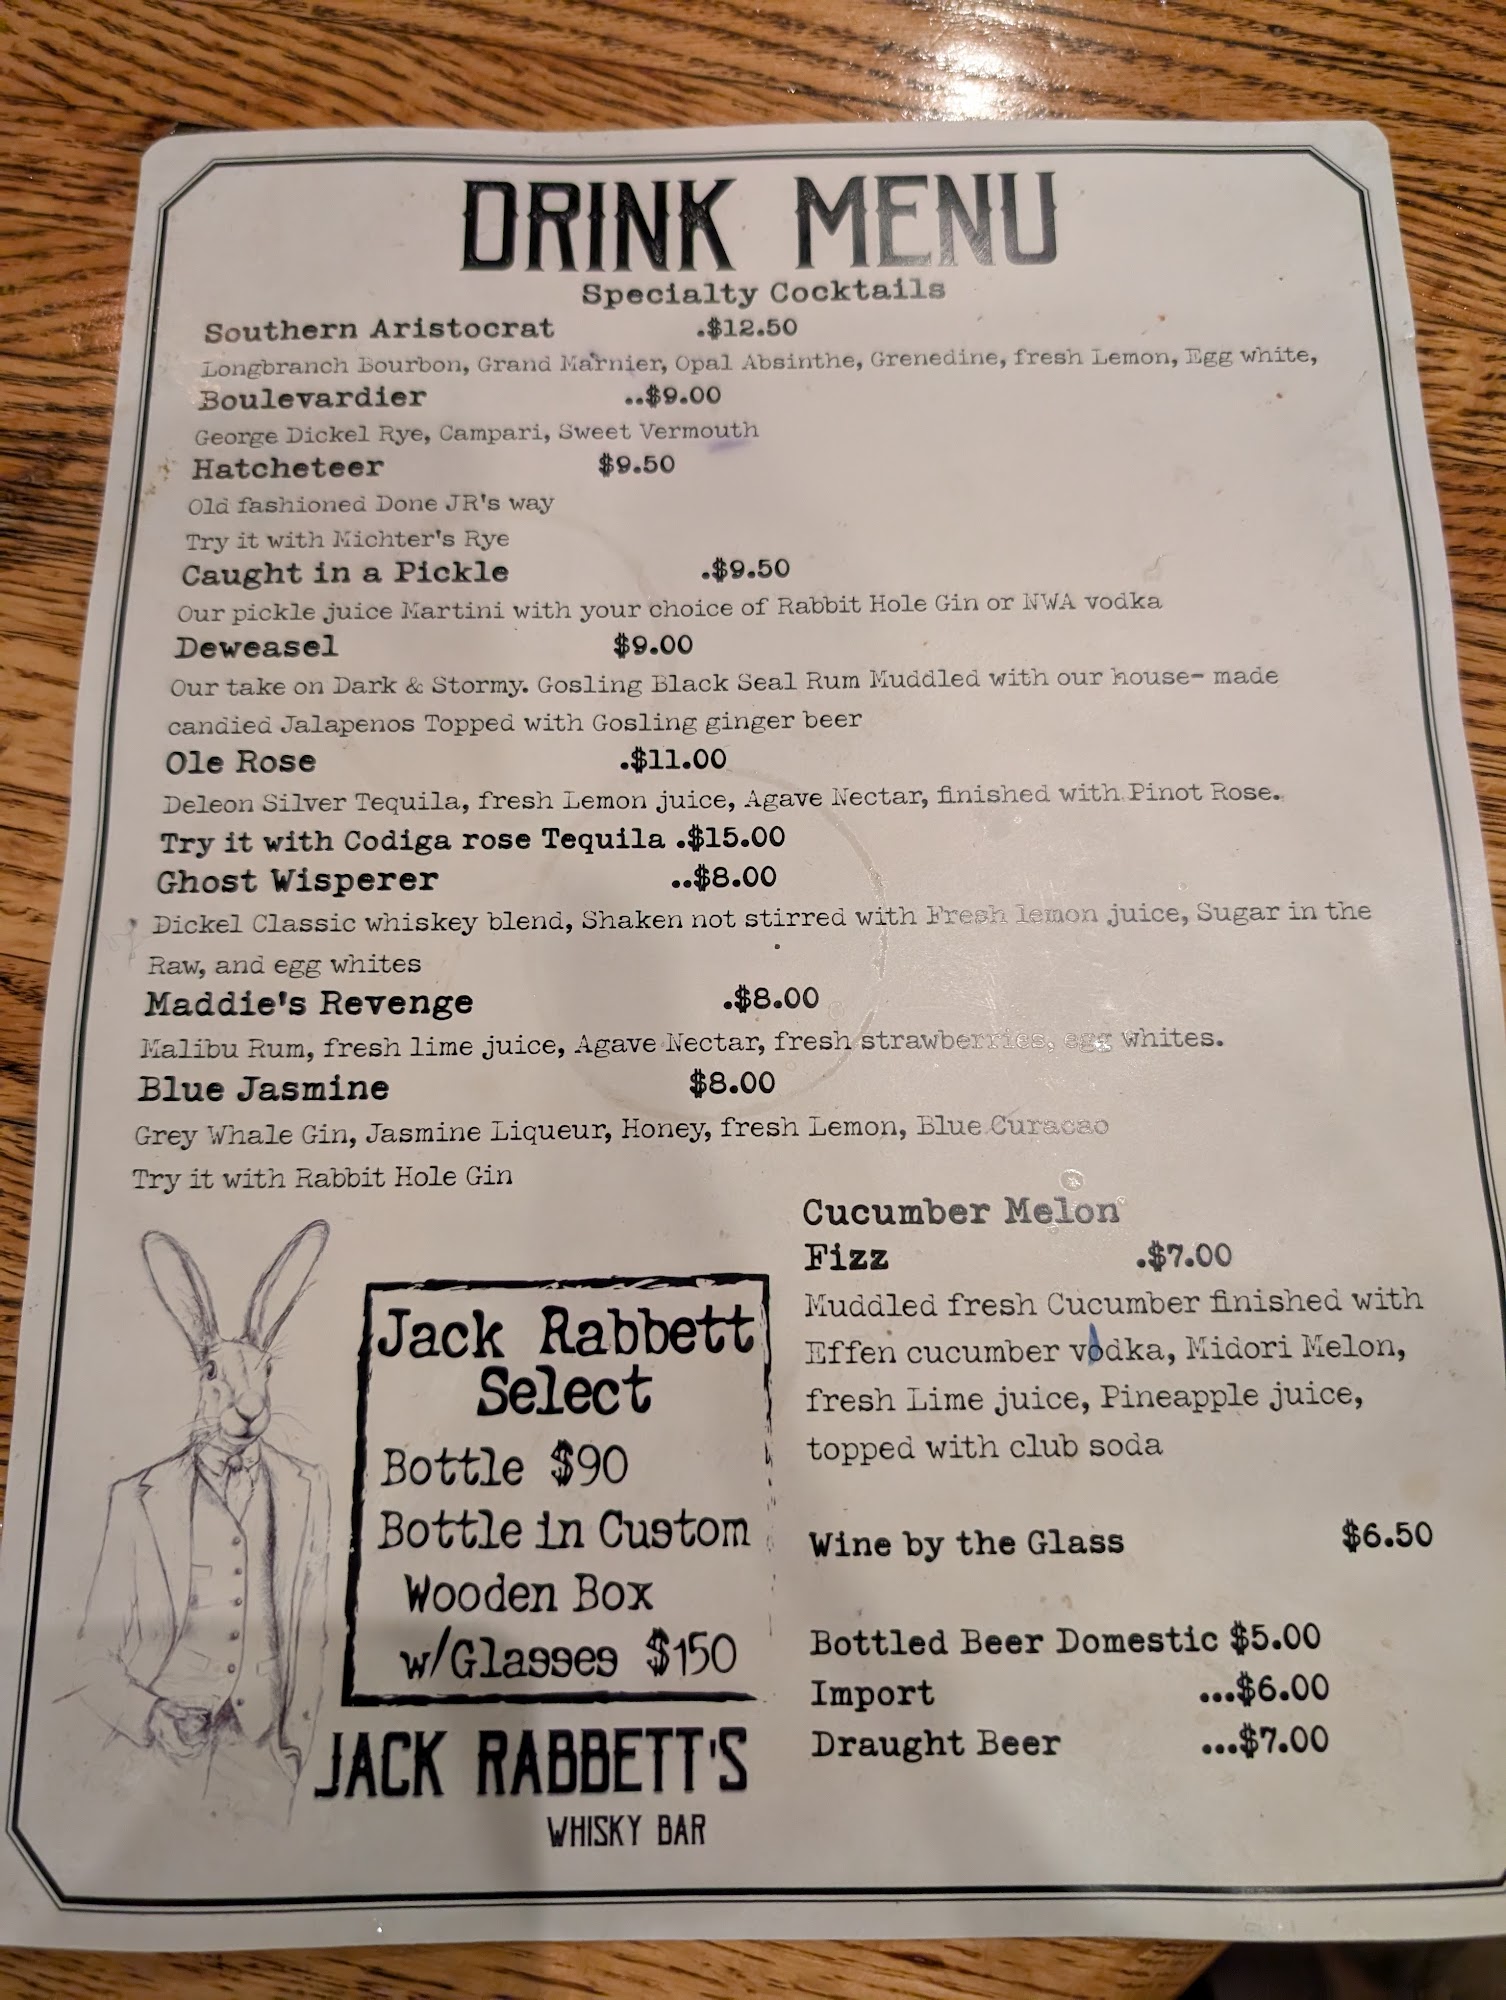 DRINK MENU
Specialty Cocktails
Southern Aristocrat .$12.50
Longbranch Bourbon, Grand Marnier, Opal Absinthe, Grenedine, fresh Lemon, Egg white,
Boulevardier ..$9.00
George Dickel Rye, Campari, Sweet Vermouth
Hatcheteer $9.50
Old fashioned Done JR's way
Try it with Michter's Rye
Caught in a Pickle .$9.50
Our pickle juice Martini with your choice of Rabbit Hole Gin or NWA vodka
Deweasel $9.00
Our take on Dark & Stormy. Gosling Black Seal Rum Muddled with our house- made
candied Jalapenos Topped with Gosling ginger beer
Ole Rose .$11.00
Deleon Silver Tequila, fresh Lemon juice, Agave Nectar, finished with Pinot Rose.
Try it with Codiga rose Tequila .$15.00
Ghost Wisperer ..$8.00
Dickel Classic whiskey blend, Shaken not stirred with Fresh lemon juice, Sugar in the
Raw, and egg whites
Maddie's Revenge .$8.00
Malibu Rum, fresh lime juice, Agave Nectar, fresh strawberries, egg whites.
Blue Jasmine $8.00
Grey Whale Gin, Jasmine Liqueur, Honey, fresh Lemon, Blue Curacao
Try it with Rabbit Hole Gin
Cucumber Melon
Fizz .$7.00
Muddled fresh Cucumber finished with
Effen cucumber vodka, Midori Melon,
fresh Lime juice, Pineapple juice,
topped with club soda
Wine by the Glass $6.50
Bottled Beer Domestic $5.00
Import ...$6.00
Draught Beer ...$7.00
Jack Rabbett
Select
Bottle $90
Bottle in Custom
Wooden Box
w/Glasses $150
JACK RABBETT'S
WHISKY BAR